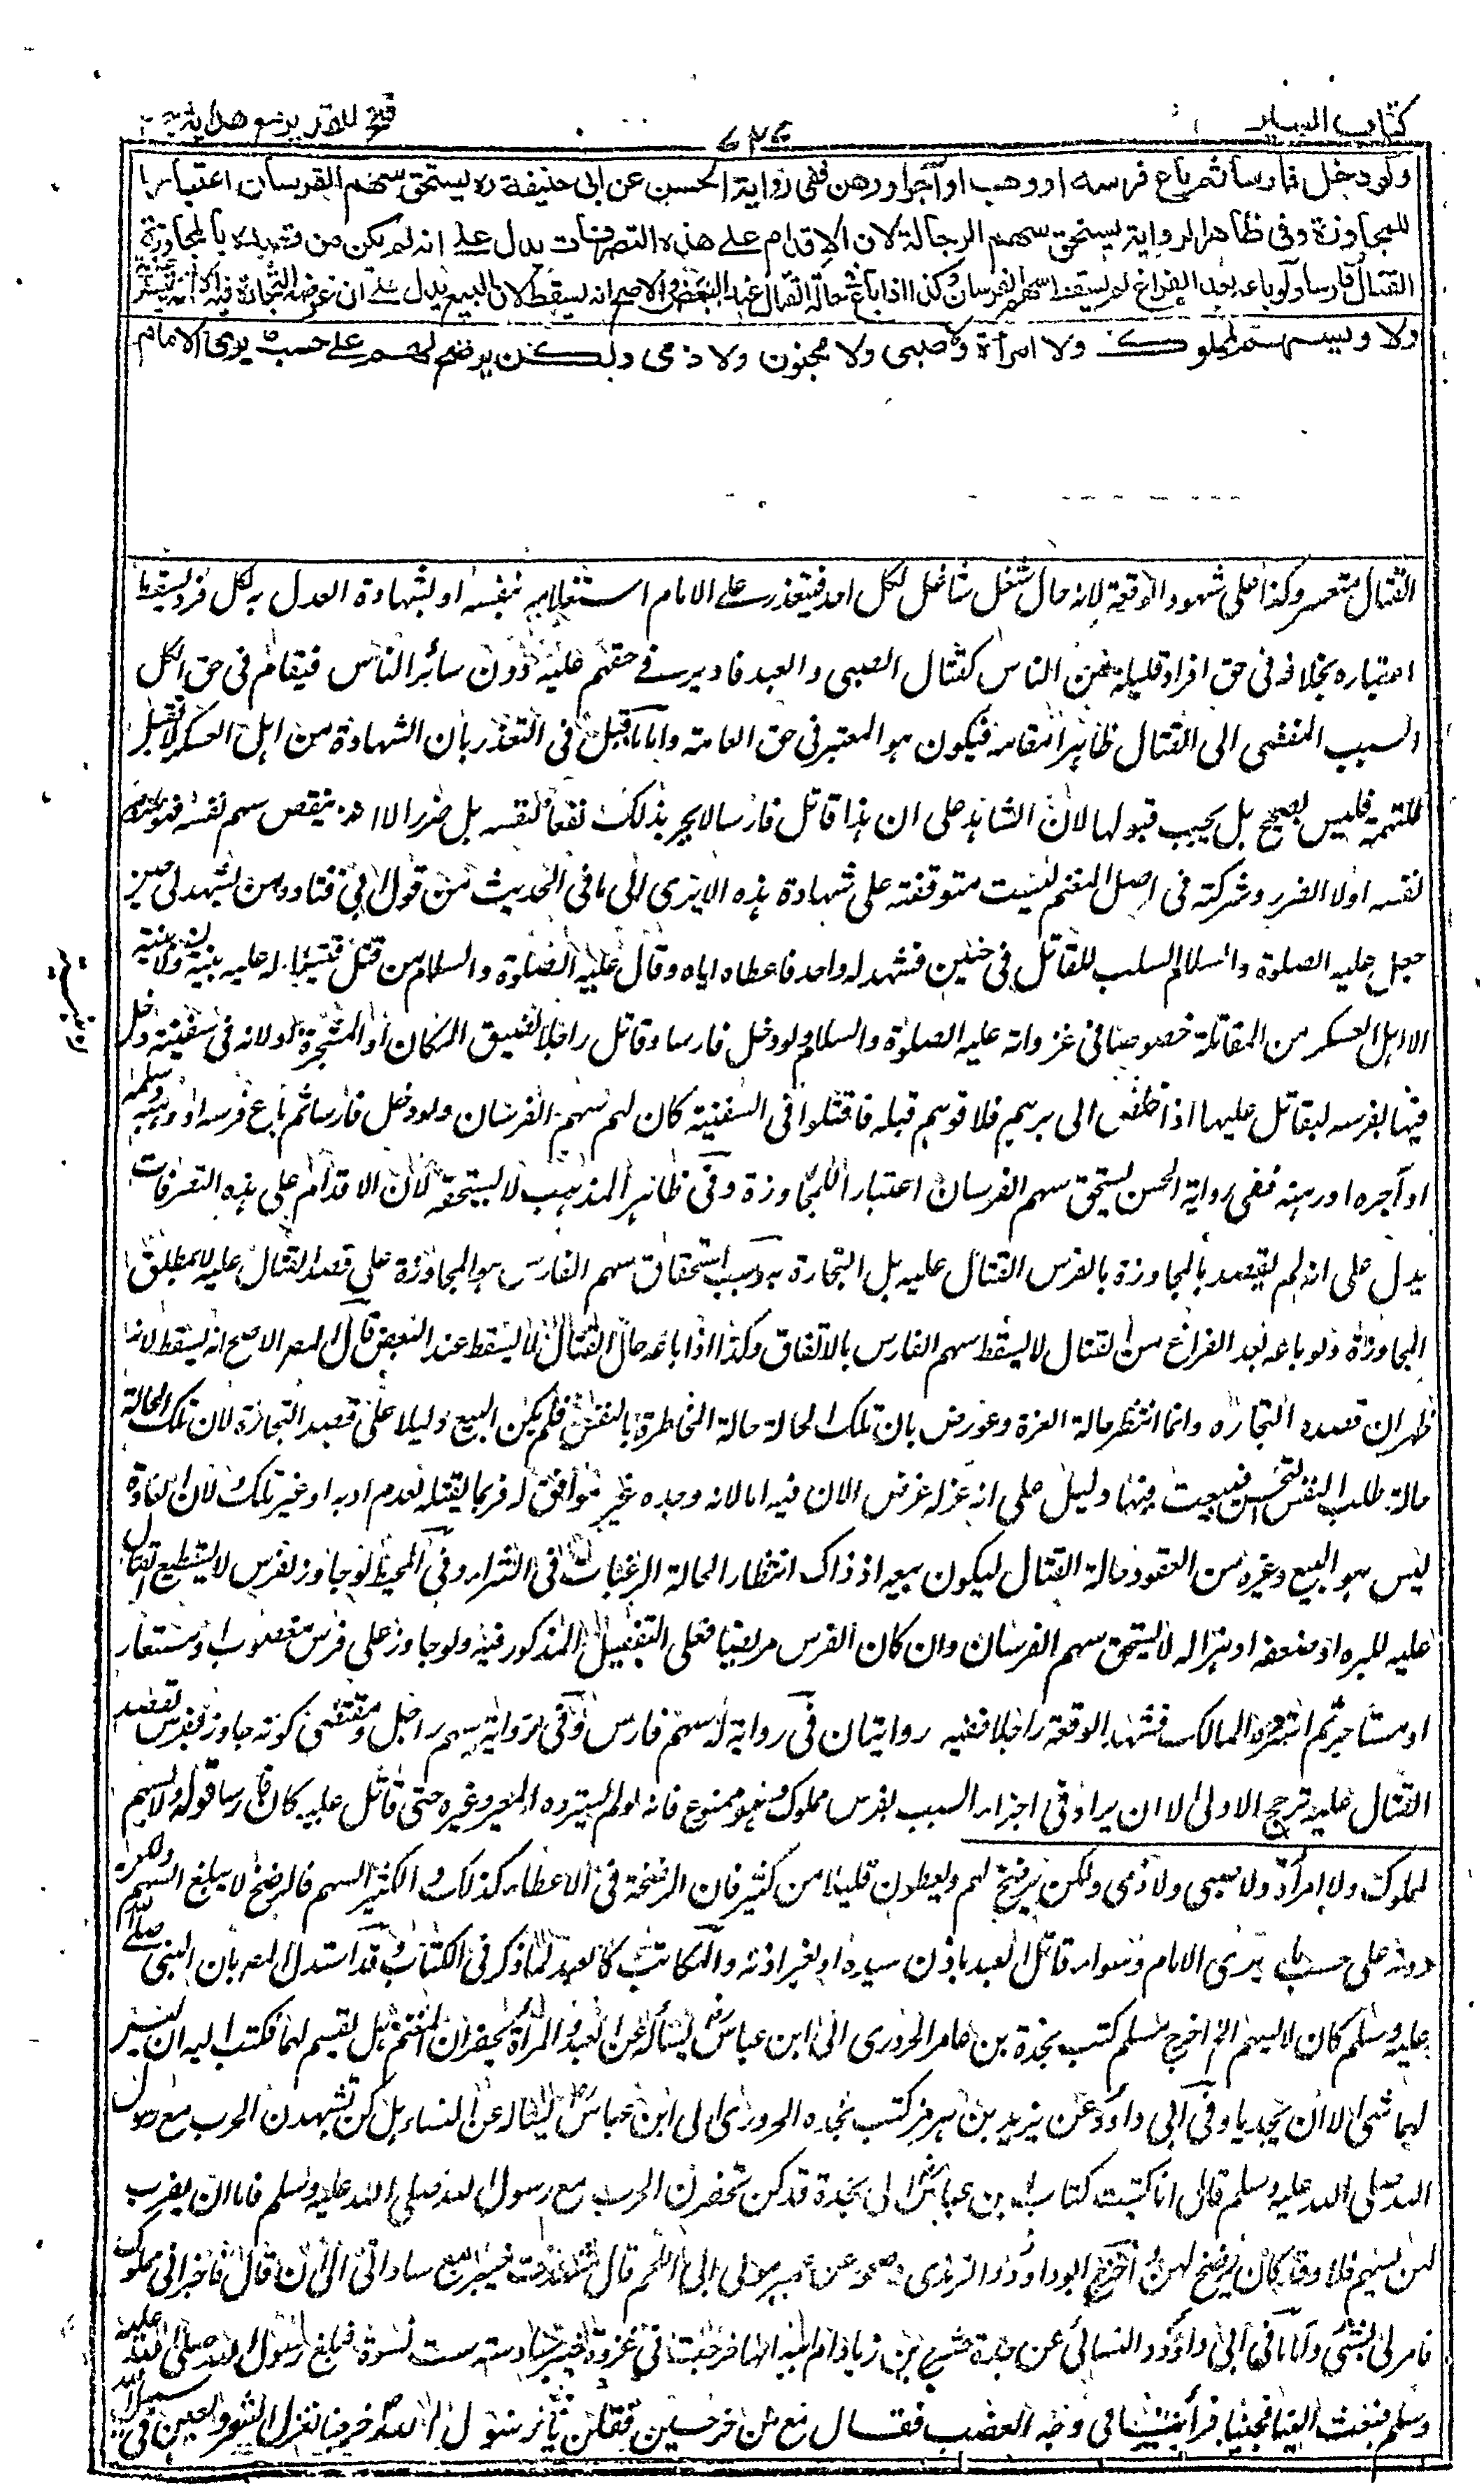 كتاب السير
فتح القدير مع هداية ج ٢
ولو دخل فارسا ثم باع فرسه او وهب او آجر او رهن ففى رواية الحسن عن ابى حنيفة ره يستحق سهم الفرسان اعتبارا
للمجاوزة وفى ظاهر الرواية يستحق سهم الرجالة لان الاقدام على هذه التصرفات يدل على انه لم يكن من قصده بالمجاوزة
القتال فارسا ولو باعه بعد الفراغ لم يسقط سهم الفرسان وكذا اذا باع فى حالة القتال عند البعض والاصح انه يسقط لان البيع يدل على ان غرضه التجارة فيه الا انه ينتظر
ولا يسهم لمملوك ولا امرأة ولا صبى ولا مجنون ولا ذمى ولكن يرضخ لهم على حسب ما يرى الامام
القتال متعسر وكذا على شهود الوقعة لانه حال شغل شاغل لكل احد فيتعذر على الامام استعلامه بنفسه او بشهادة العدل به لكل فرد فيسقط
اعتباره بخلافه فى حق افراد قليلة من الناس كقتال الصبى والعبد فاديرت فى حقهم عليه دون سائر الناس فيقام فى حق الكل
السبب المفضى الى القتال ظاهرا مقامه فيكون هو المعتبر فى حق العامة واما ما قيل فى التعذر بان الشهادة من اهل العسكر لا تقبل
للتهمة فليس بصحيح بل يجب قبولها لان الشاهد على ان هذا قاتل فارسا لا يجر بذلك نفعا لنفسه بل ضررا الا انه ينقص سهم نفسه
لنفسه اولا الضرر وشركته فى اصل المغنم ليست متوقفة على شهادة هذه الا يرى الى ما فى الحديث من قول ابى قتادة من يشهد لى حين
جعل عليه الصلوة والسلام السلب للقاتل فى حنين فشهد له واحد فاعطاه اياه وقال عليه الصلوة والسلام من قتل قتيلا له عليه بينة ولا بينة
الا اهل العسكر من المقاتلة خصوصا فى غزواته عليه الصلوة والسلام ولو دخل فارسا وقاتل راجلا لضيق المكان او المشجرة او لانه فى سفينة دخل
فيها بفرسه ليقاتل عليها اذا خلص الى برهم فلاقوهم قبله فاقتتلوا فى السفينة كان لهم سهم الفرسان ولو دخل فارسا ثم باع فرسه او وهبه وسلمه
او آجره او رهنه ففى رواية الحسن يستحق سهم الفرسان اعتبارا للمجاوزة وفى ظاهر المذهب لا يستحقه لان الاقدام على هذه التصرفات
يدل على انه لم يقصد بالمجاوزة بالفرس القتال عليه بل التجارة به وسبب استحقاق سهم الفارس هو المجاوزة على قصد القتال عليه لا مطلق
المجاوزة ولو باعه بعد الفراغ من القتال لا يسقط سهم الفارس بالاتفاق وكذا اذا باعه حال القتال لا يسقط عند البعض قال المصر الاصح انه يسقط لانه
ظهر ان قصده التجارة وانما انتظر حالة العزة وعورض بان تلك الحالة حالة المخاطرة بالنفس فلم يكن البيع دليلا على قصد التجارة لان تلك الحالة
حالة طلب النفس فبيعت فيها دليل على انه عن له غرض الان فيه اما لانه وجده غير موافق له فربما يقتله لعدم ادبه او غير تلك لان العادة
ليس هو البيع وغيره من العقود حالة القتال ليكون بيعه اذ ذاك انتظار الحالة الرغبات فى الشراء وفى المحيط لو جاوز بفرس لا يستطيع القتال
عليه لكبره او ضعفه او هزاله لا يستحق سهم الفرسان وان كان الفرس مريضا فعلى التفصيل المذكور فيه ولو جاوز على فرس مغصوب او مستعار
او مستاجر ثم استرده المالك فشهد الوقعة راجلا ففيه روايتان فى رواية له سهم فارس وفى رواية سهم راجل ومقتضى كونه جاوز بفرس لقصد
القتال عليه ترجح الاولى الا ان يراد فى اجزاء السبب بفرس مملوك وهو ممنوع فانه لو لم يسترده المعير وغيره حتى قاتل عليه كان فارسا قوله ولا يسهم
لمملوك ولا امرأة ولا صبى ولا ذمى ولكن يرضخ لهم ويعطون قليلا من كثير فان الرضخة فى الاعطاء كذلك والكثير السهم فالرضخ لا يبلغ السهم ولكن
دونه على حسب ما يرى الامام وسواء قاتل العبد باذن سيده او بغير اذنه والمكاتب كالعبد لما ذكر فى الكتاب وقد استدل المصر بان النبى صلى الله
عليه وسلم كان لا يسهم الخ اخرج مسلم كتب نجدة بن عامر الحرورى الى ابن عباس يسأله عن العبد والمرأة يحضران المغنم هل يقسم لهما فكتب اليه ان ليس
لهما شئ الا ان يحذيا وفى ابى داود عن يزيد بن هرمز كتب نجدة الحرورى الى ابن عباس يسأله عن النساء هل كن تشهدن الحرب مع رسول
الله صلى الله عليه وسلم قال انا كتبت كتاب ابن عباس الى نجدة قد كن يحضرن الحرب مع رسول الله صلى الله عليه وسلم فاما ان يضرب
لهن بسهم فلا وقد كان يرضخ لهن واخرج ابو داود والترمذى وصححه عن عمير مولى ابى اللحم قال شهدت خيبر مع ساداتى الى ان قال فاخبر انى مملوك
فامر لى بشئ واما ما فى ابى داود والنسائى عن جدة حشرج بن زياد ام ابيه انها خرجت فى غزوة خيبر سادسة ست نسوة فبلغ رسول الله صلى الله عليه
وسلم فبعث الينا فجئنا فرأينا فى وجه الغضب فقال مع من خرجتن فقلن يا رسول الله خرجنا نغزل الشعر ونعين فى سبيل الله